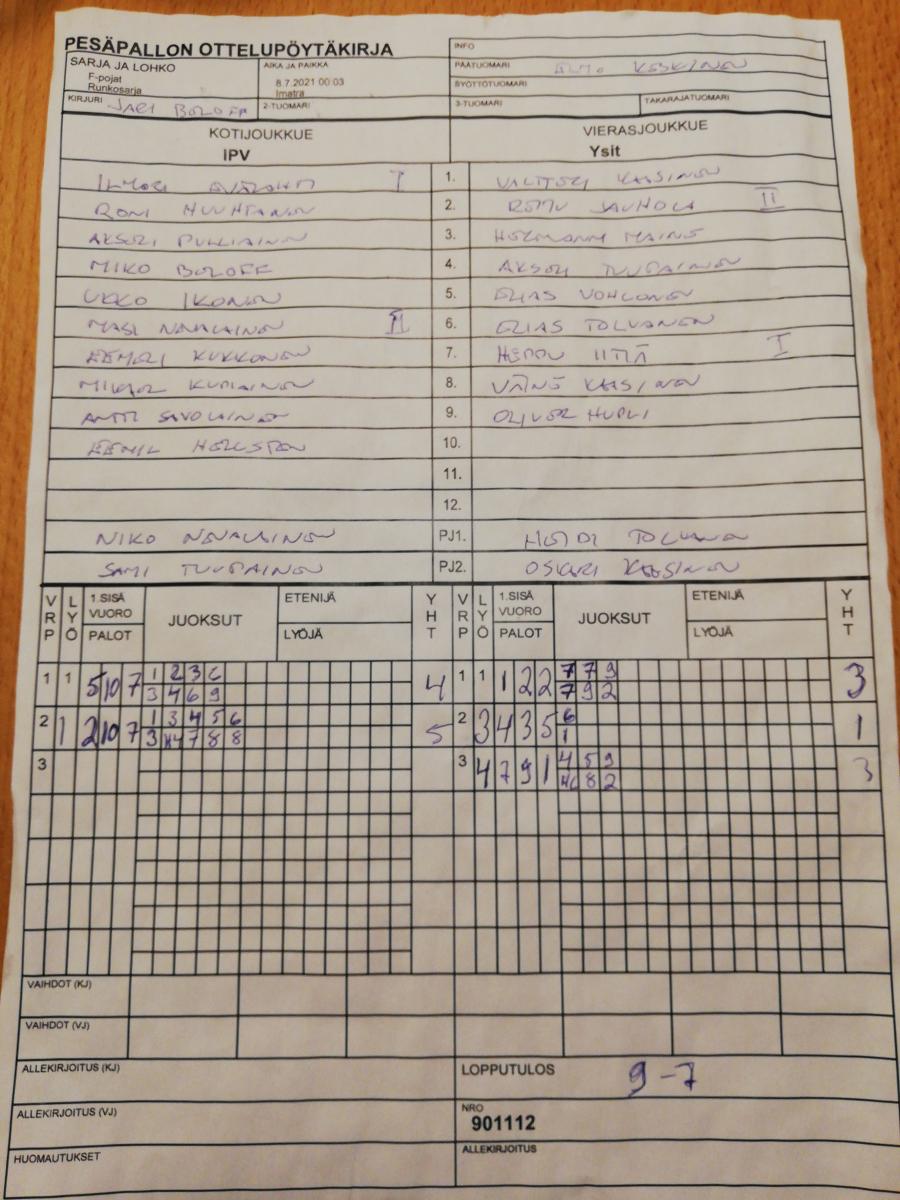 PESÄPALLON OTTELUPÖYTÄKIRJA
INFO
SARJA JA LOHKO
F-pojat
Runkosarja
AIKA JA PAIKKA
8.7.2021 00:03
Imatra
PÄÄTUOMARI KESKINEN
SYÖTTÖTUOMARI
KIRJURI JARI BOLOFF
2-TUOMARI
3-TUOMARI
TAKARAJATUOMARI
KOTIJOUKKUE
IPV
VIERASJOUKKUE
Ysit
ILMARI I 1. VALTTERI KAASINEN
RONI HUUHTANEN 2. ROTTU JAUHOLA II
AKSELI PULLIAINEN 3. HERMANNI
MIKO BOLOFF 4. AKSELI TUUPAINEN
UKKO IKONEN 5. ELIAS VOHLONEN
MASI NENALAINEN II 6. ELIAS TOLVANEN
EEMELI KUKKONEN 7. HEPPU IITIÄ I
MIKAEL KUPIAINEN 8. VÄINÖ KAASINEN
ANTTI SAVOLAINEN 9. OLIVER HUPLI
EEMIL HELLSTEN 10.
11.
12.
NIKO NENALAINEN PJ1. HEIDI TOLVANEN
SAMI TUUPAINEN PJ2. OSKARI KAASINEN
VRP LYÖ 1.SISÄ VUORO PALOT JUOKSUT ETENIJÄ LYÖJÄ YHT VRP LYÖ 1.SISÄ VUORO PALOT JUOKSUT ETENIJÄ LYÖJÄ YHT
1 1 5 10 7 1 2 3 6 4 1 1 1 2 2 7 7 9 3
3 4 6 9 7 9 2
2 1 2 10 7 1 3 4 5 6 5 2 3 4 3 5 6 1
3 4 7 8 8 1
3 3 4 7 9 1 4 5 9 3
8 2
VAIHDOT (KJ)
VAIHDOT (VJ)
ALLEKIRJOITUS (KJ)
LOPPUTULOS 9-7
ALLEKIRJOITUS (VJ)
NRO
901112
HUOMAUTUKSET
ALLEKIRJOITUS